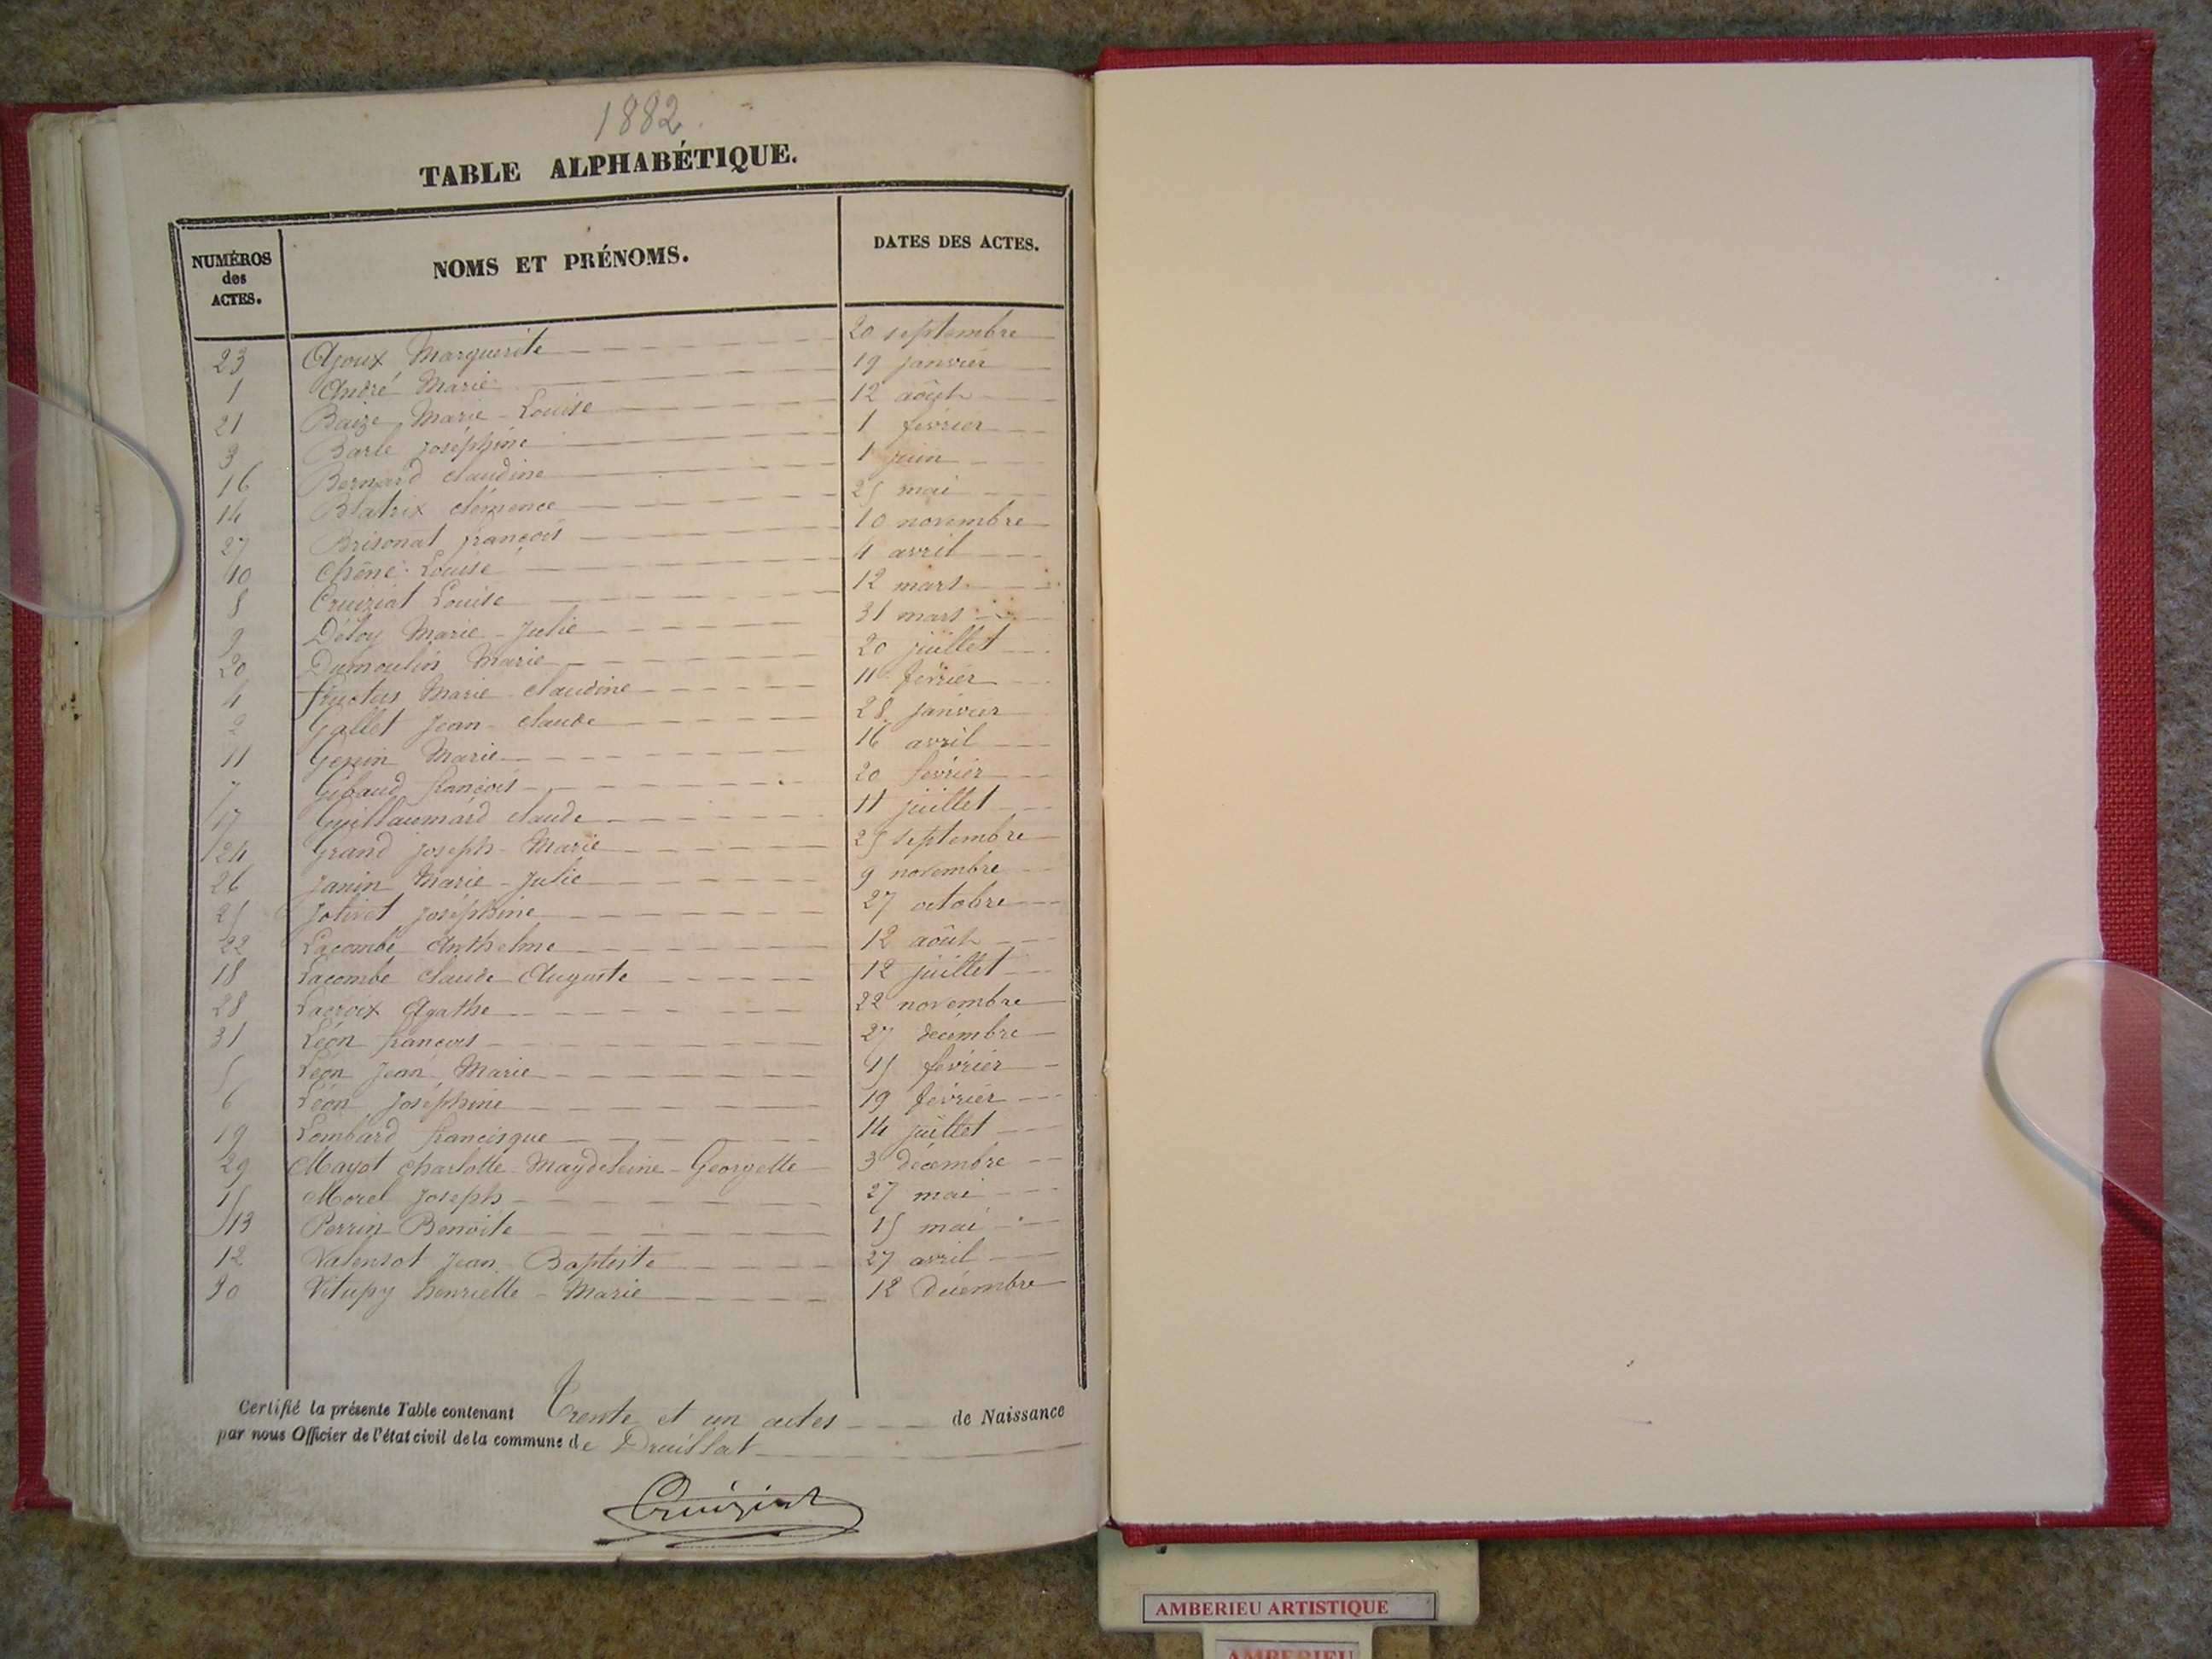 1882.
TABLE ALPHABÉTIQUE.
NUMÉROS des ACTES. NOMS ET PRÉNOMS. DATES DES ACTES.
23 Ajoux Marguerite 20 septembre
1 André Marie 19 janvier
21 Baize Marie-Louise 12 août
3 Barle Joséphine 1 février
16 Bernard Claudine 1 juin
14 Blatrix Clémence 25 mai
27 Brisonat françois 10 novembre
10 Chêne Louise 4 avril
8 Cruiziat Louise 12 mars
9 Déloy Marie-Julie 31 mars
20 Dumoulin Marie 20 juillet
4 fructus Marie-Claudine 11 février
2 Gallet Jean-Claude 28 janvier
11 Genin Marie 16 avril
7 Gibaud françois 20 février
17 Guillaumard Claude 11 juillet
24 Grand Joseph-Marie 25 septembre
26 Janin Marie-Julie 9 novembre
25 Jolivet Joséphine 27 octobre
22 Lacombe Anthelme 12 août
18 Lacombe Claude-Auguste 12 juillet
28 Lacroix Agathe 22 novembre
31 Léon françois 27 décembre
5 Léon Jean-Marie 15 février
6 Léon Joséphine 19 février
19 Lombard francisque 14 juillet
29 Mayot Charlotte-Magdeleine-Georgette 3 décembre
15 Morel Joseph 27 mai
13 Perrin Benoite 15 mai
12 Valensot Jean-Baptiste 27 avril
30 Vitupy henriette-Marie 12 décembre
Certifié la présente Table contenant Trente et un actes de Naissance
par nous Officier de l'état civil de la commune de Druillat
Cruiziat
AMBERIEU ARTISTIQUE
AMBERIEU